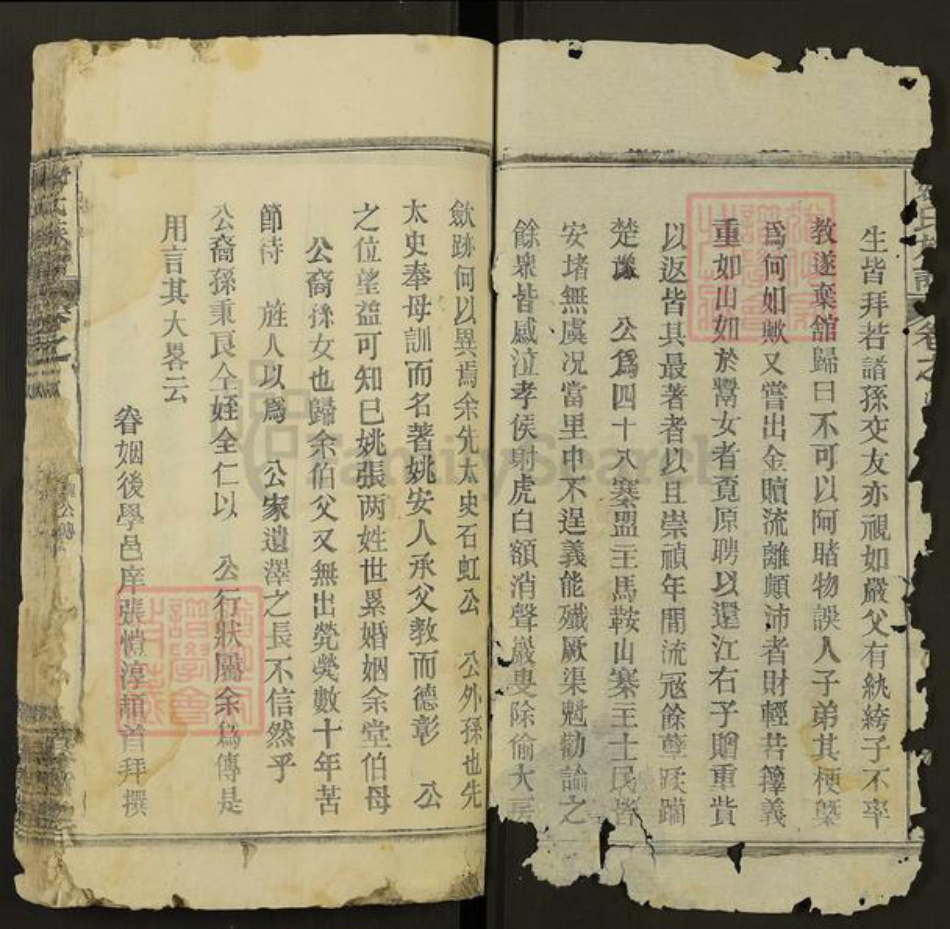 生皆拜若諸孫交友亦視如嚴父有紈綺子不率
教遂棄舘歸曰不可以阿睹物誤人子弟其梗槩
爲何如歟又嘗出金贖流離顛沛者財輕若籜義
重如山如於鬻女者竟原聘以還江右予贈重貲
以返皆其最著者以且崇禎年間流冦餘孽蹂躪
楚豫 公爲四十八寨盟主馬鞍山寨主士民皆
安堵無虞况當里中不逞義能殱厥渠魁勸諭之
餘衆皆感泣孝侯射虎白額消聲嚴叟除偷大
歛跡何以異焉余先太史石虹公 公外孫也先
太史奉母訓而名著姚安人承父教而德彰 公
之位望益可知巳姚張两姓世累婚姻余堂伯母
公裔孫女也歸余伯父又無出煢煢數十年苦
節待 旌人以爲 公家遺澤之長不信然乎
公裔孫秉良仝姪全仁以 公行狀屬余爲傳是
用言其大畧云
眷姻後學邑庠張愷淳頓首拜撰
氏族譜
卷之
FamilySearch